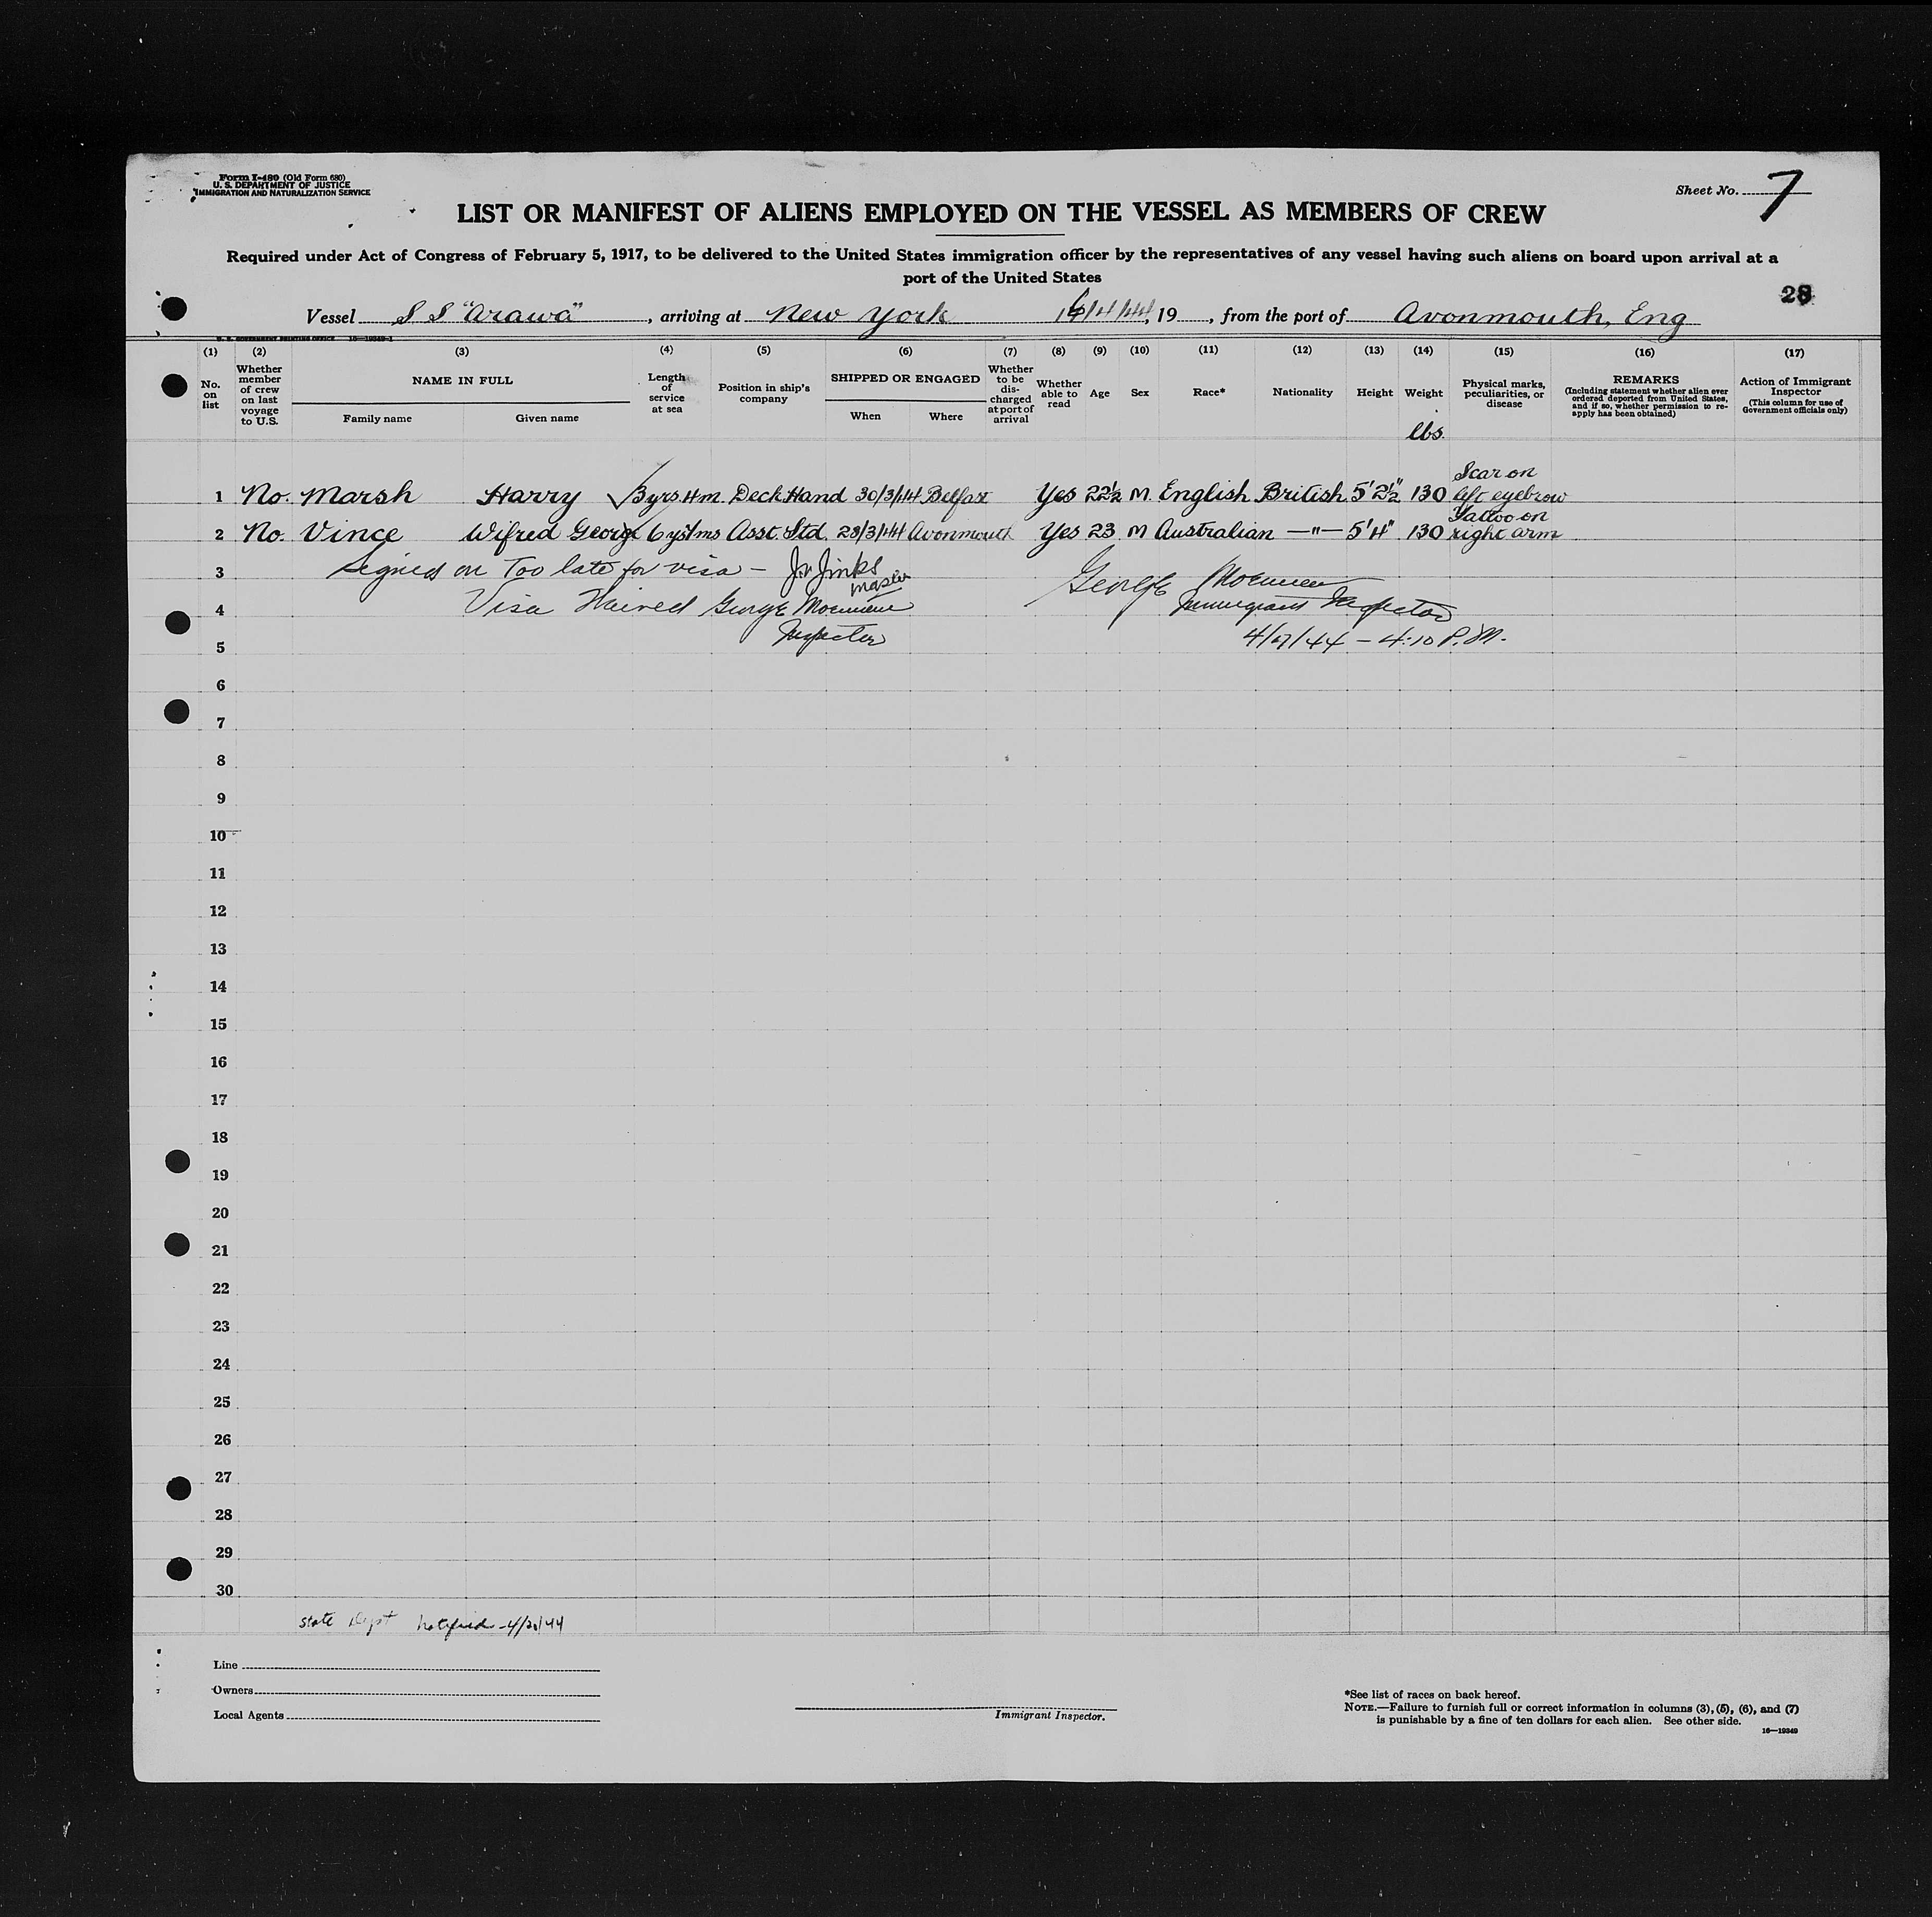 Form I-489 (Old Form 680)
U. S. DEPARTMENT OF JUSTICE
IMMIGRATION AND NATURALIZATION SERVICE
Sheet No. 7
LIST OR MANIFEST OF ALIENS EMPLOYED ON THE VESSEL AS MEMBERS OF CREW
Required under Act of Congress of February 5, 1917, to be delivered to the United States immigration officer by the representatives of any vessel having such aliens on board upon arrival at a
port of the United States
28
Vessel S S "Arawa", arriving at New York /4/44, 19 , from the port of Avonmouth, Eng
U. S. GOVERNMENT PRINTING OFFICE 16—19349-1
(1) (2) (3) (4) (5) (6) (7) (8) (9) (10) (11) (12) (13) (14) (15) (16) (17)
No. on list
Whether member of crew on last voyage to U.S.
NAME IN FULL
Family name
Given name
Length of service at sea
Position in ship's company
SHIPPED OR ENGAGED
When
Where
Whether to be discharged at port of arrival
Whether able to read
Age
Sex
Race*
Nationality
Height
Weight
lbs.
Physical marks, peculiarities, or disease
REMARKS
(Including statement whether alien ever ordered deported from United States, and if so, whether permission to reapply has been obtained)
Action of Immigrant Inspector
(This column for use of Government officials only)
1 No. Marsh Harry 3yrs.4m. Deck Hand 30/3/44 Belfast Yes 22½ M. English British 5'2½" 130 Scar on left eyebrow
2 No. Vince Wifred George 6 yrs 1ms Asst. Std. 28/3/44 Avonmouth Yes 23 M Australian —"— 5'4" 130 Tattoo on right arm
3 Signed on Too late for visa — Jinks Master
4 Visa Waived George
Inspector
George
Immigrant Inspector
4/17/44 — 4:10 P.M.
5
6
7
8
9
10
11
12
13
14
15
16
17
18
19
20
21
22
23
24
25
26
27
28
29
30
State Dept notified - 4/20/44
Line
Owners
Local Agents
Immigrant Inspector.
*See list of races on back hereof.
NOTE.—Failure to furnish full or correct information in columns (3), (5), (6), and (7)
is punishable by a fine of ten dollars for each alien. See other side.
16—19349